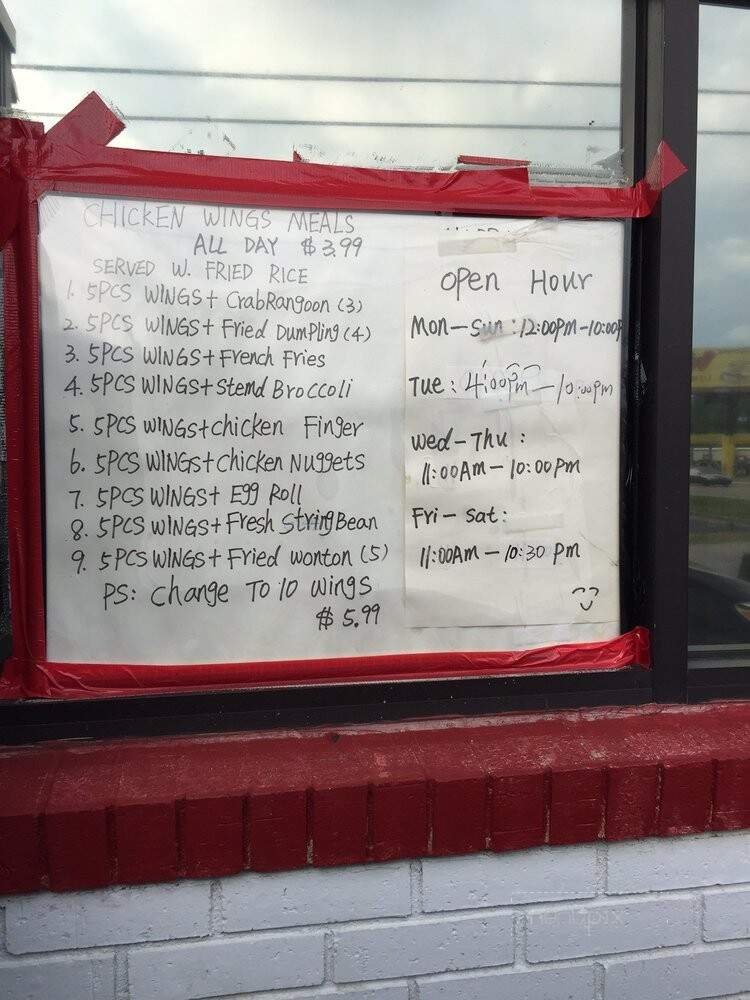 CHICKEN WINGS MEALS
ALL DAY $3.99
SERVED W. FRIED RICE
1. 5PCS WINGS+ CrabRangoon (3)
2. 5PCS WINGS+ Fried Dumpling (4)
3. 5PCS WINGS+ French Fries
4. 5PCS WINGS+ Stemd Broccoli
5. 5PCS WINGS+chicken Finger
6. 5PCS WINGS+chicken Nuggets
7. 5PCS WINGS+ Egg Roll
8. 5PCS WINGS+Fresh StringBean
9. 5PCS WINGS+ Fried wonton (5)
PS: change To 10 wings
$5.99
open Hour
Mon—Sun :12:00pm-10:00P
Tue: 4:00pm—10:00pm
Wed-Thu :
11:00Am—10:00pm
Fri—sat:
11:00Am—10:30 pm